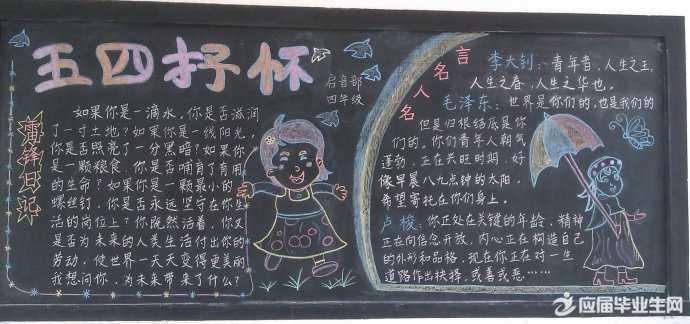 五四抒怀
启音部
四年级
雷锋日记
如果你是一滴水，你是否滋润
了一寸土地？如果你是一线阳光，
你是否照亮了一分黑暗？如果你
是一颗粮食，你是否哺育了有用
的生命？如果你是一颗最小的
螺丝钉，你是否永远坚守在你生
活的岗位上？你既然活着，你又
是否为未来的人类生活付出你的
劳动，使世界一天天变得更美丽
我想问你，为未来带来了什么？
名人名言
李大钊：青年者，人生之王，
人生之春，人生之华也。
毛泽东：世界是你们的，也是我们的
但是归根结底是你
们的。你们青年人朝气
蓬勃，正在兴旺时期，好
像早晨八九点钟的太阳，
希望寄托在你们身上。
卢梭：你正处在关键的年龄，精神
正在向信念开放，内心正在构造自己
的外形和品格，现在你正在对一生
道路作出抉择，或善或恶……
应届毕业生网